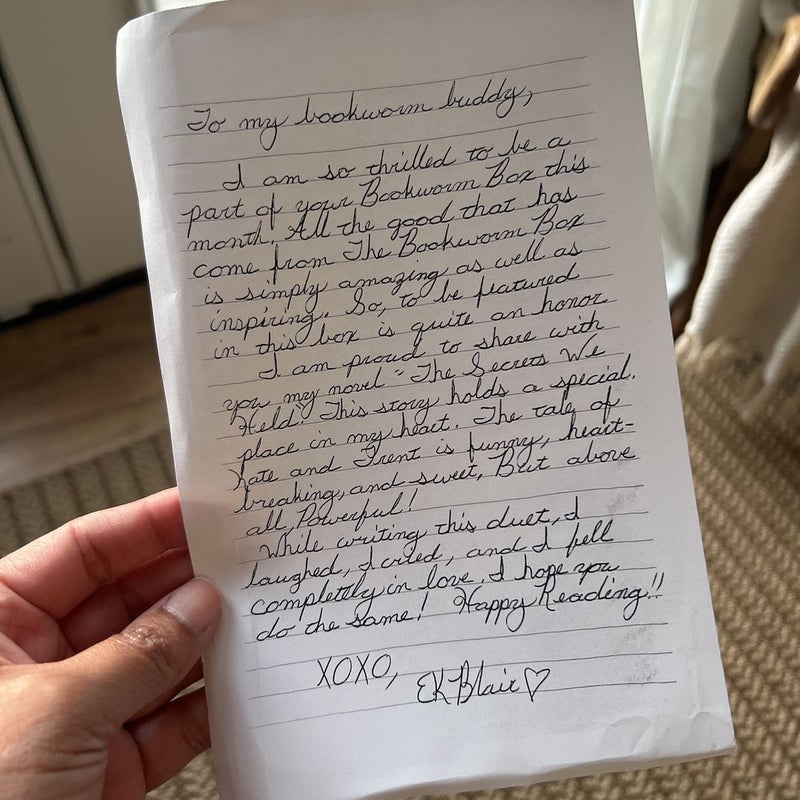 To my bookworm buddy,
I am so thrilled to be a
part of your Bookworm Box this
month. All the good that has
come from The Bookworm Box
is simply amazing as well as
inspiring. So, to be featured
in this box is quite an honor
I am proud to share with
you my novel "The Secrets We
Held." This story holds a special
place in my heart. The tale of
Kate and Trent is funny, heart-
breaking, and sweet, But above
all, Powerful!
While writing this duet, I
laughed, I cried, and I fell
completely in love. I hope you
do the same! Happy Reading!!
XOXO,
EK Blair♡